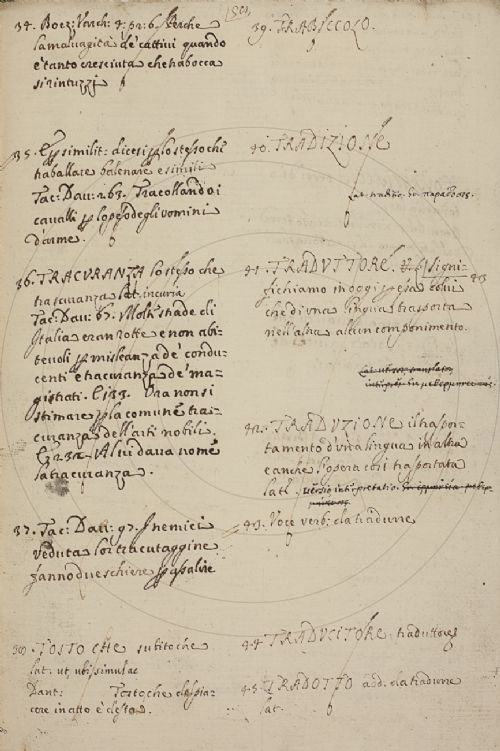 34. Boez: Varch: 4. pr: 6. Perche
la malvagità de' cattivi quando
è tanto cresciuta che trabocca
si rintuzzi
35. E per similit: dicesi per lo stesso che
traballare balenare e simili
Tac: Dav: 263. Tracollando i
cavalli per lo peso degli uomini
d'arme.
36. TRACURANZA lo stesso che
trascuranza Lat. incuria
Tac: Dav: 67. Molte strade di
Italia eran rotte e non abi-
tevoli per misleanza de' condu-
centi e tracuranza de' ma-
gistrati. E 133. Ora non si
stimare per la comune tra-
curanza dell'arti nobili.
E 232. Altrui dava nome
la tracuranza.
37. Tac: Dav: 97. I nemici
veduta lor tracutaggine
fanno due schiere per assalire
38. TOSTO CHE subito che
lat. ut ubi simul ac
Dant: Tosto che del pia-
cere in atto è desto.
39. TRABICCOLO.
40. TRADIZIONE
Lat. traditio. Gr. παράδοσις.
41. TRADUTTORE. Signi-
fichiamo in oggi per essa colui
che di una lingua trasporta
nell'altra alcun componimento.
42. TRADUZIONE il traspor-
tamento d'una lingua in altra
e anche l'opera così trasportata
lat.
43. Voce verb: da tradurre
44. TRADUCITORE traduttore
45. TRADOTTO add. da tradurre
lat.